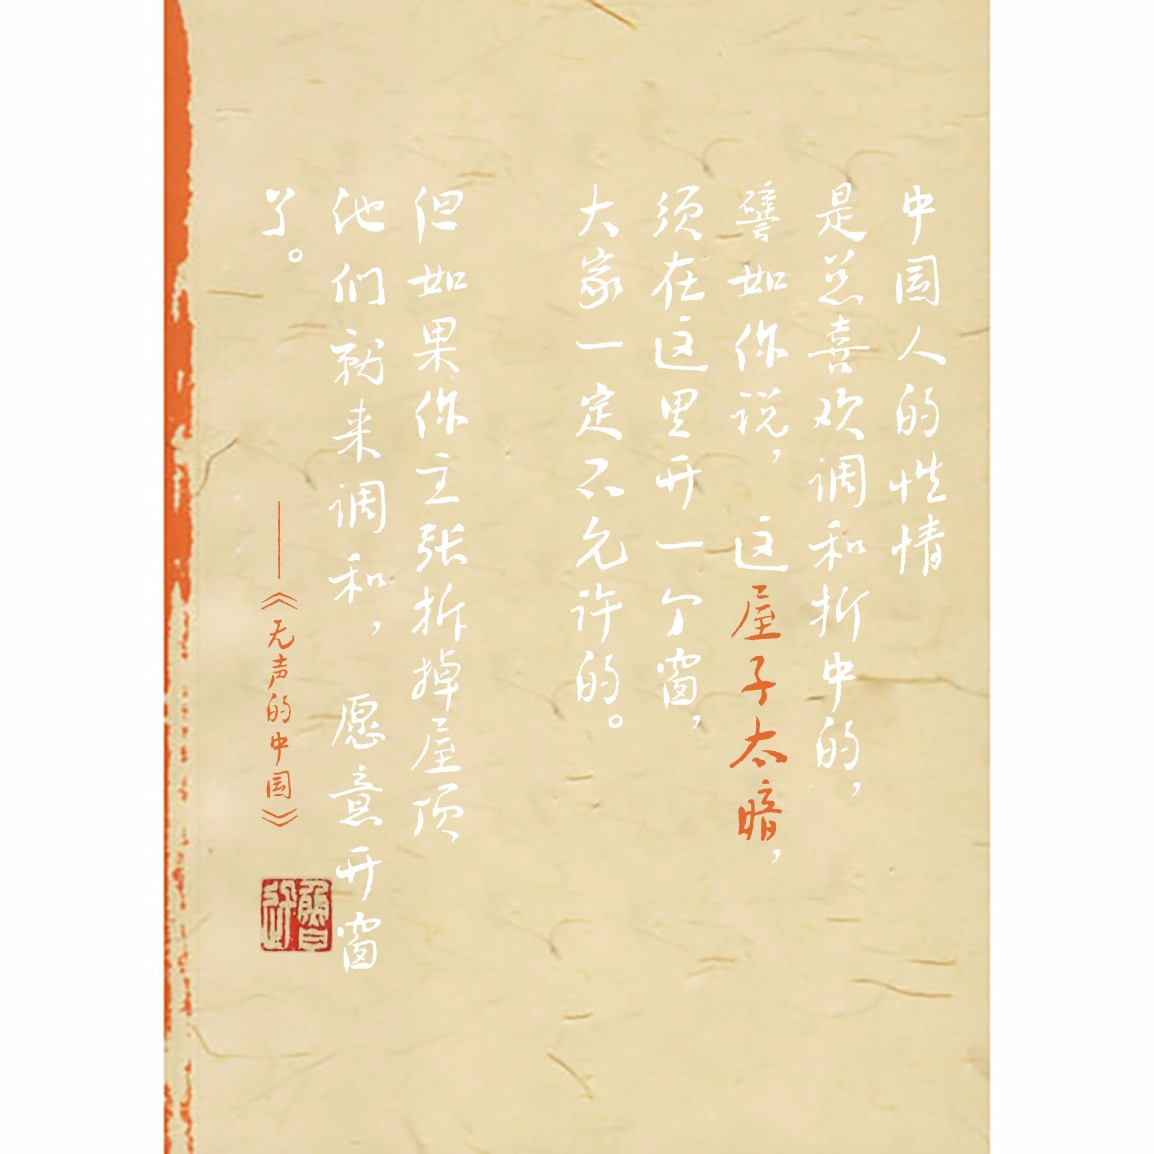 中国人的性情
是总喜欢调和折中的，
譬如你说，这屋子太暗，
须在这里开一个窗，
大家一定不允许的。
但如果你主张拆掉屋顶
他们就来调和，愿意开窗
了。
——《无声的中国》
鲁迅